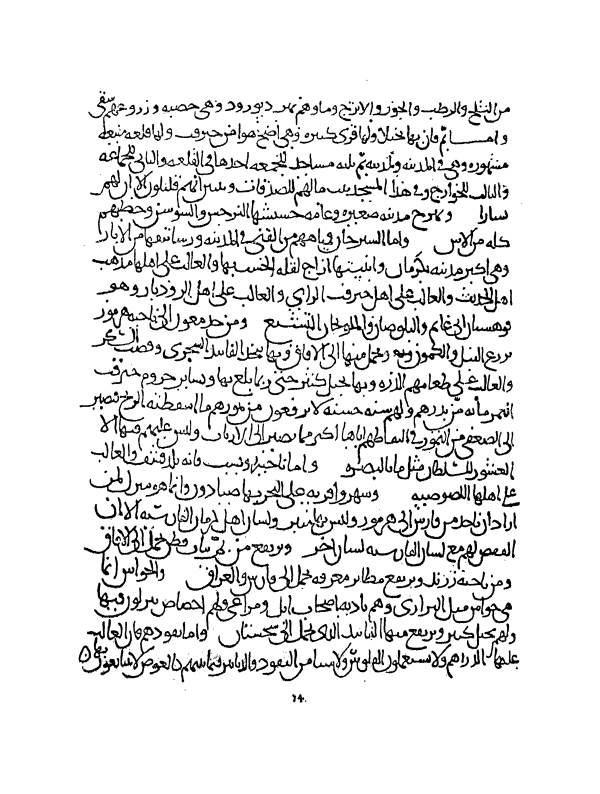 من الثلج والرطب والجوز والاترج وماوهم من نهر ديورود وهي خصبه وزروعهم سقى
فان بها نخلا ولها قرى كثيره وهي اخصب نواحى جيرفت ولها قلعه منيعه
مشهوره وهي في المدينه وبالمدينه ثلثه مساجد للجمعه احدها في القلعه والثاني للجماعه
والثالث للخوارج وفى هذا المسجد بيت مالهم للصدقات وليس انهم قليلون الا ان لهم
يسارا مدينه صغيره وعامه حشيشها النرجس والسوسن وحطبهم
كله من الاس واما السيرجان فمياههم من القنى في المدينه ورساتيقها من الابار
وهي اكبر مدينه بكرمان وابنيتها ازاج لقله الخشب بها والغالب على اهلها مذهب
اهل الحديث والغالب على اهل جيرفت الراى والغالب على اهل الروذبار
الى غانم والبلوص والمنوجان التشيع ومن حد معون الى ناحيه هرموز
يزرع النيل والكمون ويحمل منها الى الافاق وبها يتخذ الفانيد السجزى وقصب السكر
والغالب على طعامهم الذره وبها نخيل كثير حتى ربما بلغ بها وبساير جروم جيرفت
التمر مائه من بدرهم ولهم سنه حسنه لا يرفعون من تمورهم ما اسقطته الريح فتصير
الى الضعفى من التمور في التقاطهم اياها اكثر مما يصير الى الارباب وليس عليهم فيها الا
العشور للسلطان مثل ما بالبصره واما ناحيه فانه بلد قشف والغالب
على اهلها اللصوصيه وسهروا قريه على البحر بها صيادون وانما هو منزل لمن
اراد ان ياخذ من فارس الى هرموز وليس بها منبر ولسان اهل كرمان الفارسيه الا ان
القفص لهم مع لسان الفارسيه لسان اخر ويرتفع من كرمان وقطن يحمل الى الافاق
ومن ناحيه زرند يرتفع بطاين معروفه تحمل الى فارس والعراق والحواس انما
هي خواص مثل البرارى وهم باديه اصحاب ابل ومراعى ولهم اخصاص ينزلون فيها
ولهم نخيل كثير ويرتفع منها الفانيد الذى يحمل الى سجستان واما نقودهم فان الغالب
عليها الدراهم ولا يستعملون الفلوس ولا شيا من النقود والدنانير فيما بينهم كالعروض لا يتبايعون بها
74.